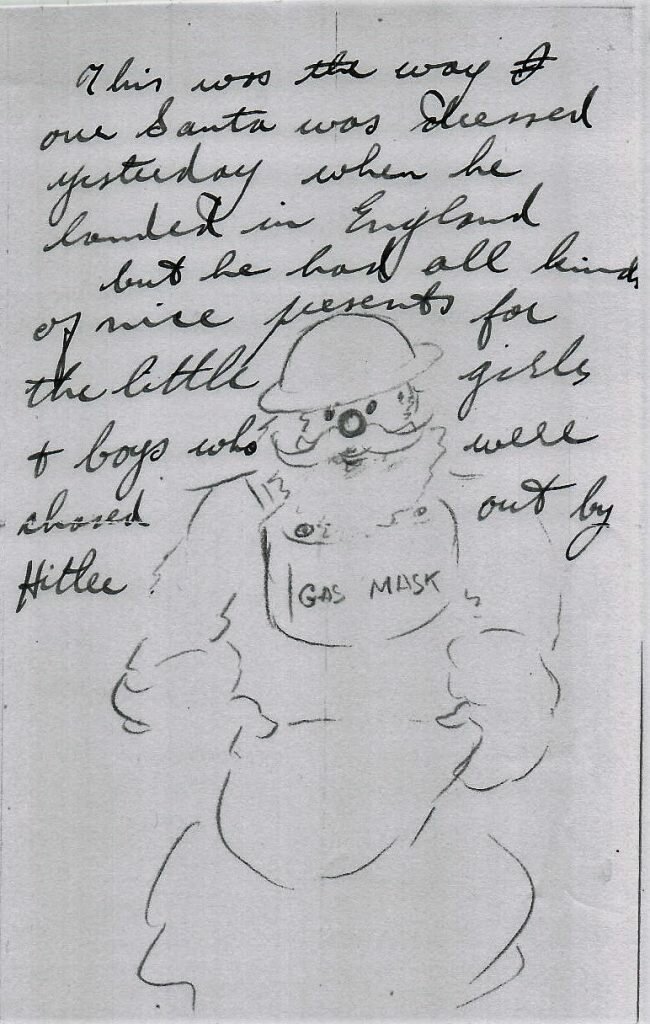 This was the way
our Santa was dressed
yesterday when he
landed in England
but he had all kinds
of nice presents for
the little girls
+ boys who were
chased out by
Hitler
GAS MASK